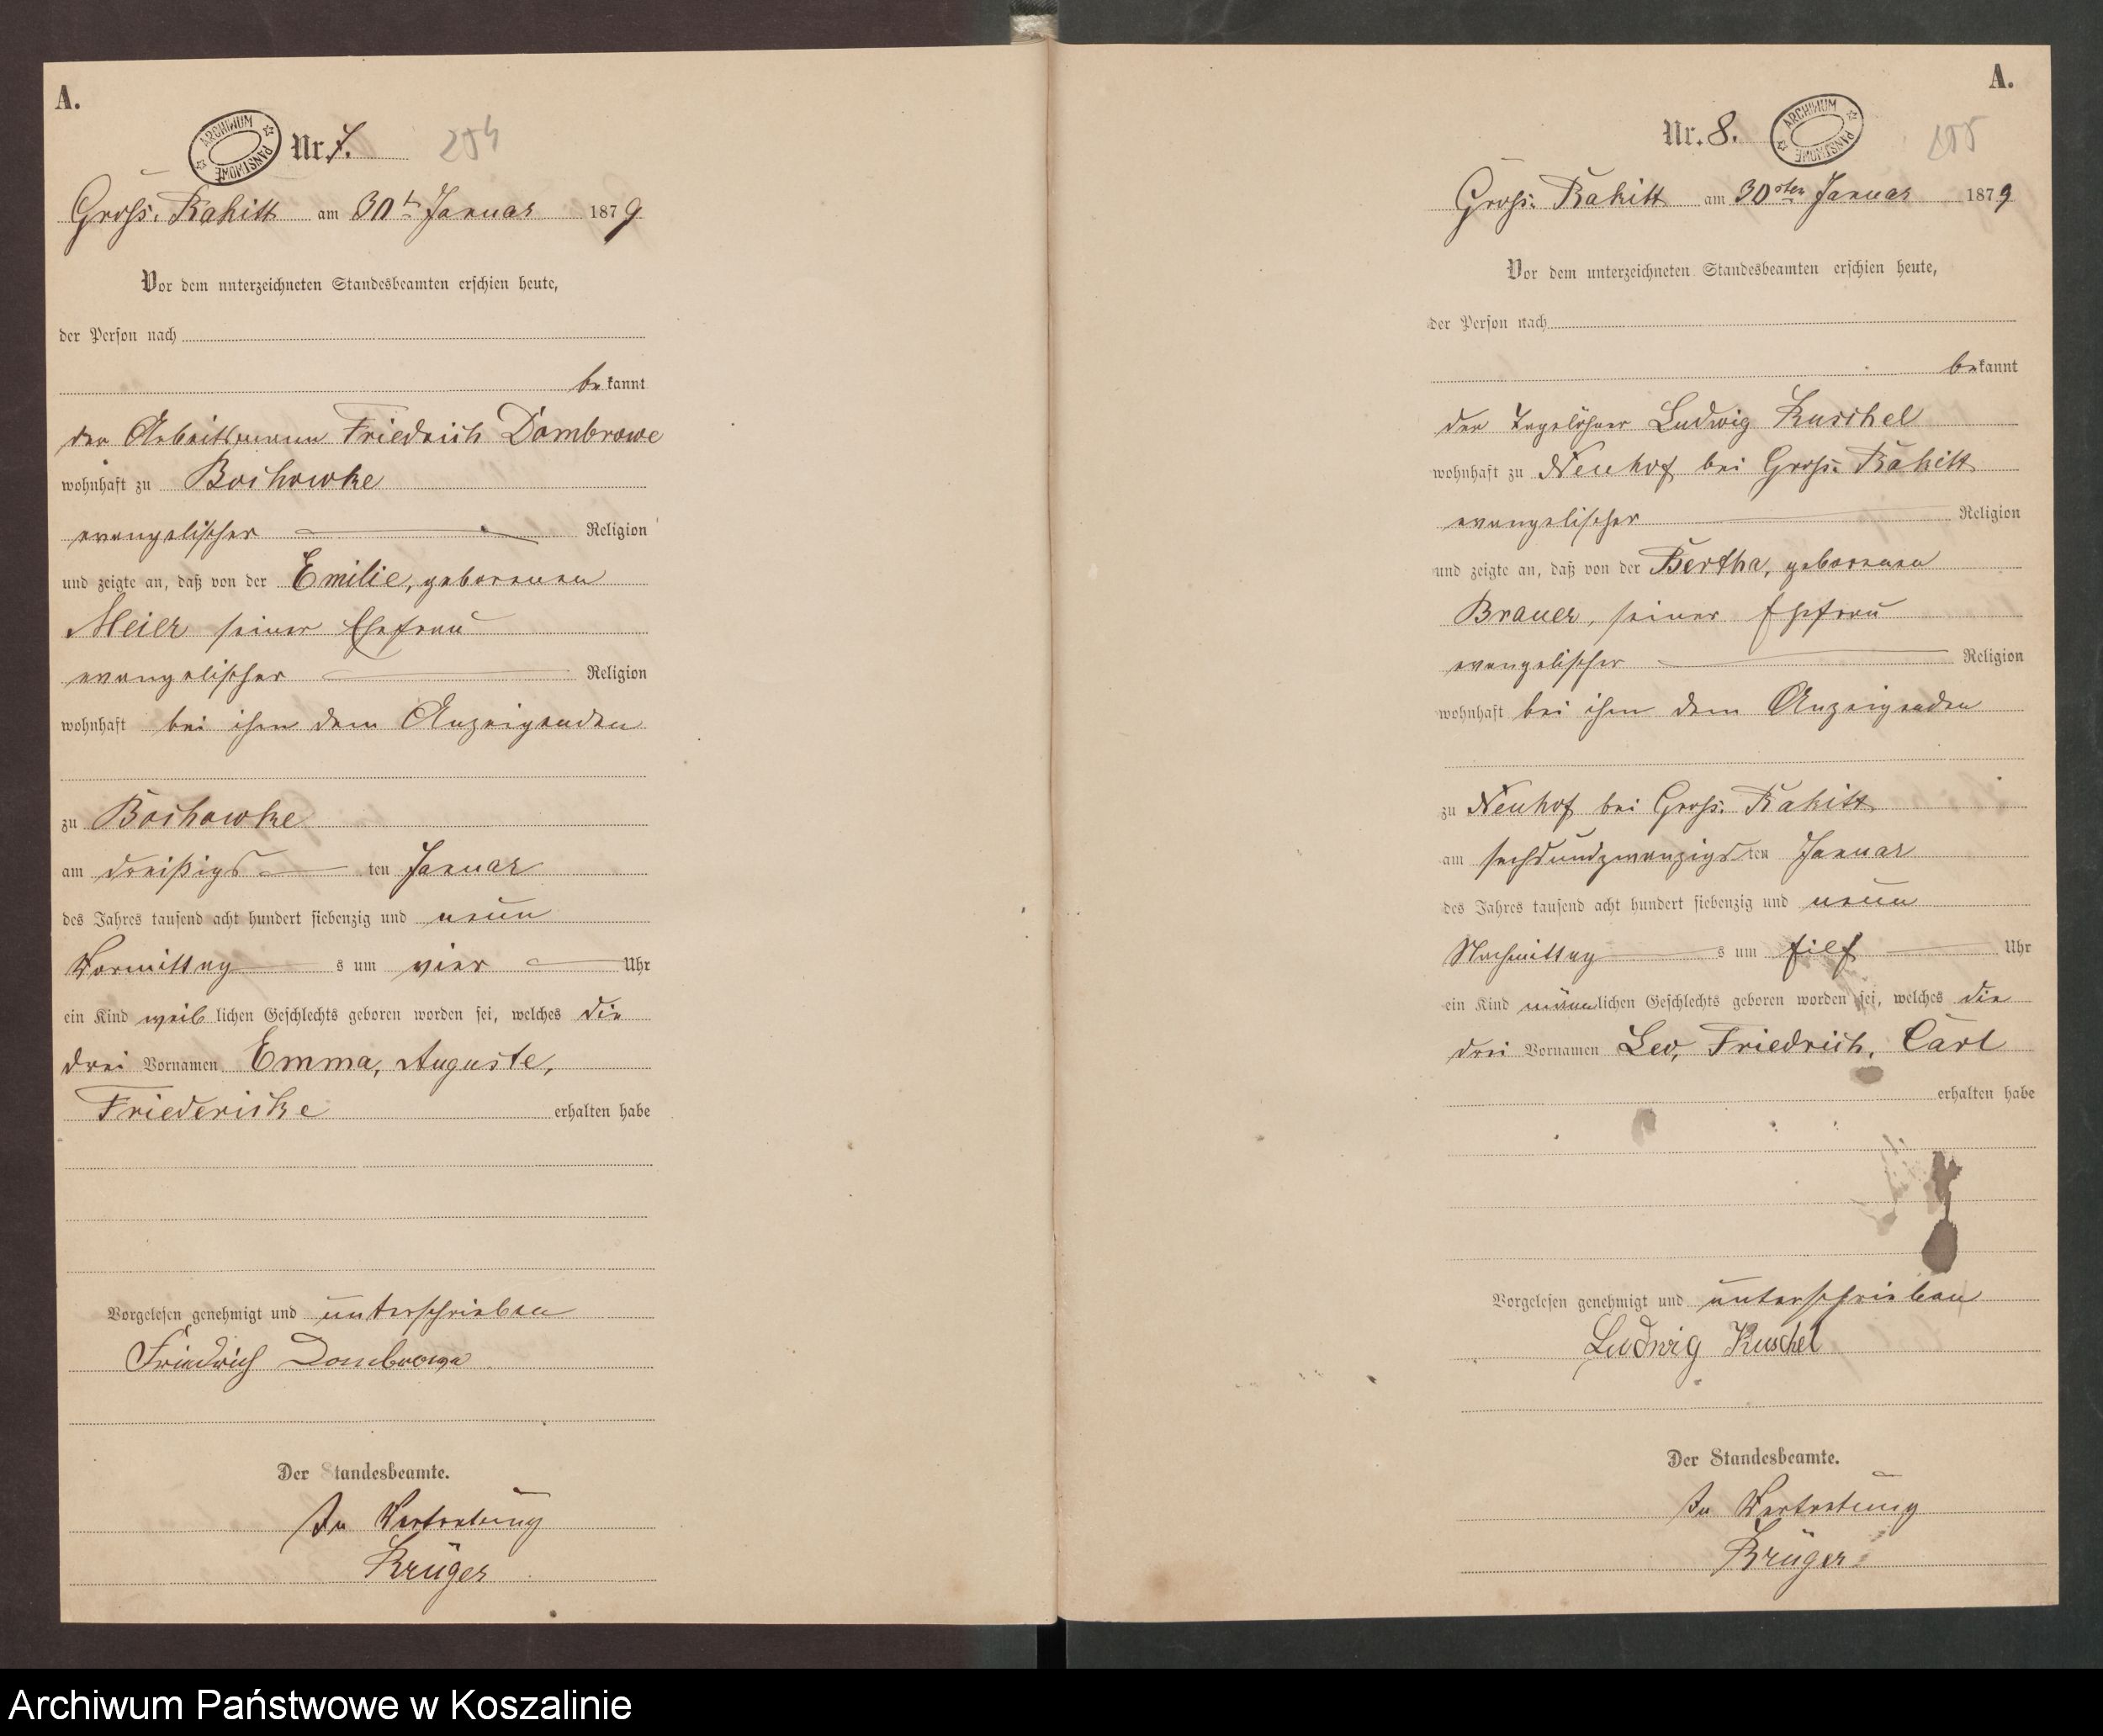 A.
ARCHIWUM PAŃSTWOWE
Nr. 7. 254
Gross. Rakitt am 30t Januar 1879
Vor dem unterzeichneten Standesbeamten erschien heute,
der Person nach
bekannt
der Arbeitsmann Friedrich Dombrowe
wohnhaft zu Bochowke
evangelischer Religion
und zeigte an, daß von der Emilie, geborenen
Meier seiner Ehefrau
evangelischer Religion
wohnhaft bei ihm dem Anzeigenden
zu Bochowke
am dreißigsten Januar
des Jahres tausend acht hundert siebenzig und neun
Vormittags um vier Uhr
ein Kind weiblichen Geschlechts geboren worden sei, welches die
drei Vornamen Emma, Auguste,
Friedericke erhalten habe
Vorgelesen genehmigt und unterschrieben
Friedrich Dombrowe
Der Standesbeamte.
In Vertretung
Krüger
A.
Nr. 8. ARCHIWUM PAŃSTWOWE 255
Gross: Rakitt am 30sten Januar 1879
Vor dem unterzeichneten Standesbeamten erschien heute,
der Person nach
bekannt
der Tagelöhner Ludwig Kuschel
wohnhaft zu Neuhof bei Gross: Rakitt
evangelischer Religion
und zeigte an, daß von der Bertha, geborenen
Brauer, seiner Ehefrau
evangelischer Religion
wohnhaft bei ihm dem Anzeigenden
zu Neuhof bei Gross: Rakitt
am sechsundzwanzigsten Januar
des Jahres tausend acht hundert siebenzig und neun
Nachmittags um filf Uhr
ein Kind männlichen Geschlechts geboren worden sei, welches die
drei Vornamen Leo, Friedrich, Carl
erhalten habe
Vorgelesen genehmigt und unterschrieben
Ludwig Kuschel
Der Standesbeamte.
In Vertretung
Krüger
Archiwum Państwowe w Koszalinie